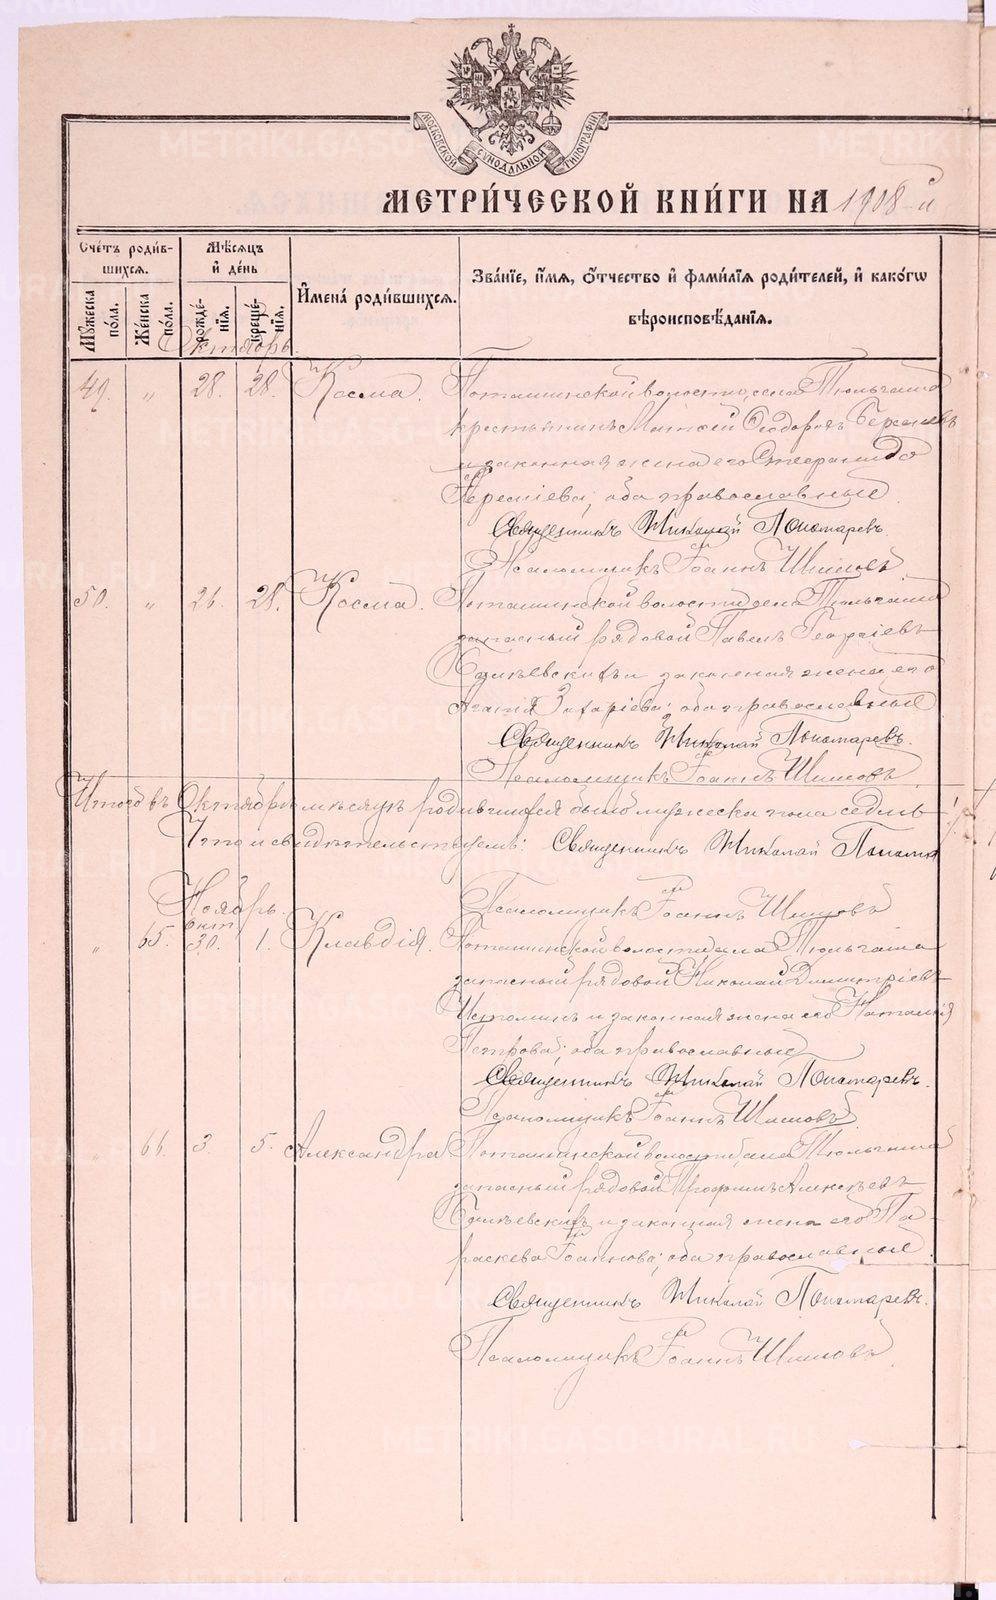 МОСКОВСКОЙ СѴНОДАЛЬНОЙ ТИПОГРАФІИ
МЕТРИ́ЧЕСКОЙ КНИ́ГИ НА 1908-й
Сче́тъ роди́в-
шихсѧ.
Мѣ́сѧцъ
и҆ де́нь
И҆мена̀ роди́вшихсѧ.
Зва́нїе, и҆́мѧ, ѻ҆́тчество и҆ фами́лїѧ роди́телей, и҆ како́гѡ
вѣроисповѣ́данїѧ.
Мꙋ́жеска по́ла.
Же́нска по́ла.
рожде́-
нїѧ.
креще́-
нїѧ.
Октябрь.
49. „ 28. 28. Косма. Поташинской волости, села Тюльгаша
крестьянинъ Матѳей Ѳеодоровъ
и законная жена его Стефанида
оба православные.
Священникъ Николай Пономаревъ.
Псаломщикъ Іоаннъ Шишовъ.
50. „ 26. 28. Косма. Поташинской волости, села Тюльгаша
запасный рядовой Павелъ Георгіевъ
и законная жена его
Агапія Захаріева; оба православные
Священникъ Николай Пономаревъ.
Псаломщикъ Іоаннъ Шишовъ
Итого въ Октябрѣ мѣсяцѣ родившихся было мужеска пола седмь
Что и свидѣтельствуемъ: Священникъ Николай
Ноябрь.
Псаломщикъ Іоаннъ Шишовъ
окт.
„ 65. 30. 1. Клавдія. Поташинской волости, села Тюльгаша
запасный рядовой Николай Димитріевъ
Истоминъ и законная жена его Наталія
Петрова; оба православные
Священникъ Николай Пономаревъ.
Псаломщикъ Іоаннъ Шишовъ.
„ 66. 3. 5. Александра Поташинской волости, села Тюльгаша
запасный рядовой Трофимъ Алексѣевъ
и законная жена его Па-
раскева Іоаннова; оба православные.
Священникъ Николай Пономаревъ.
Псаломщикъ Іоаннъ Шишовъ.
METRIKI.GASO-URAL.RU